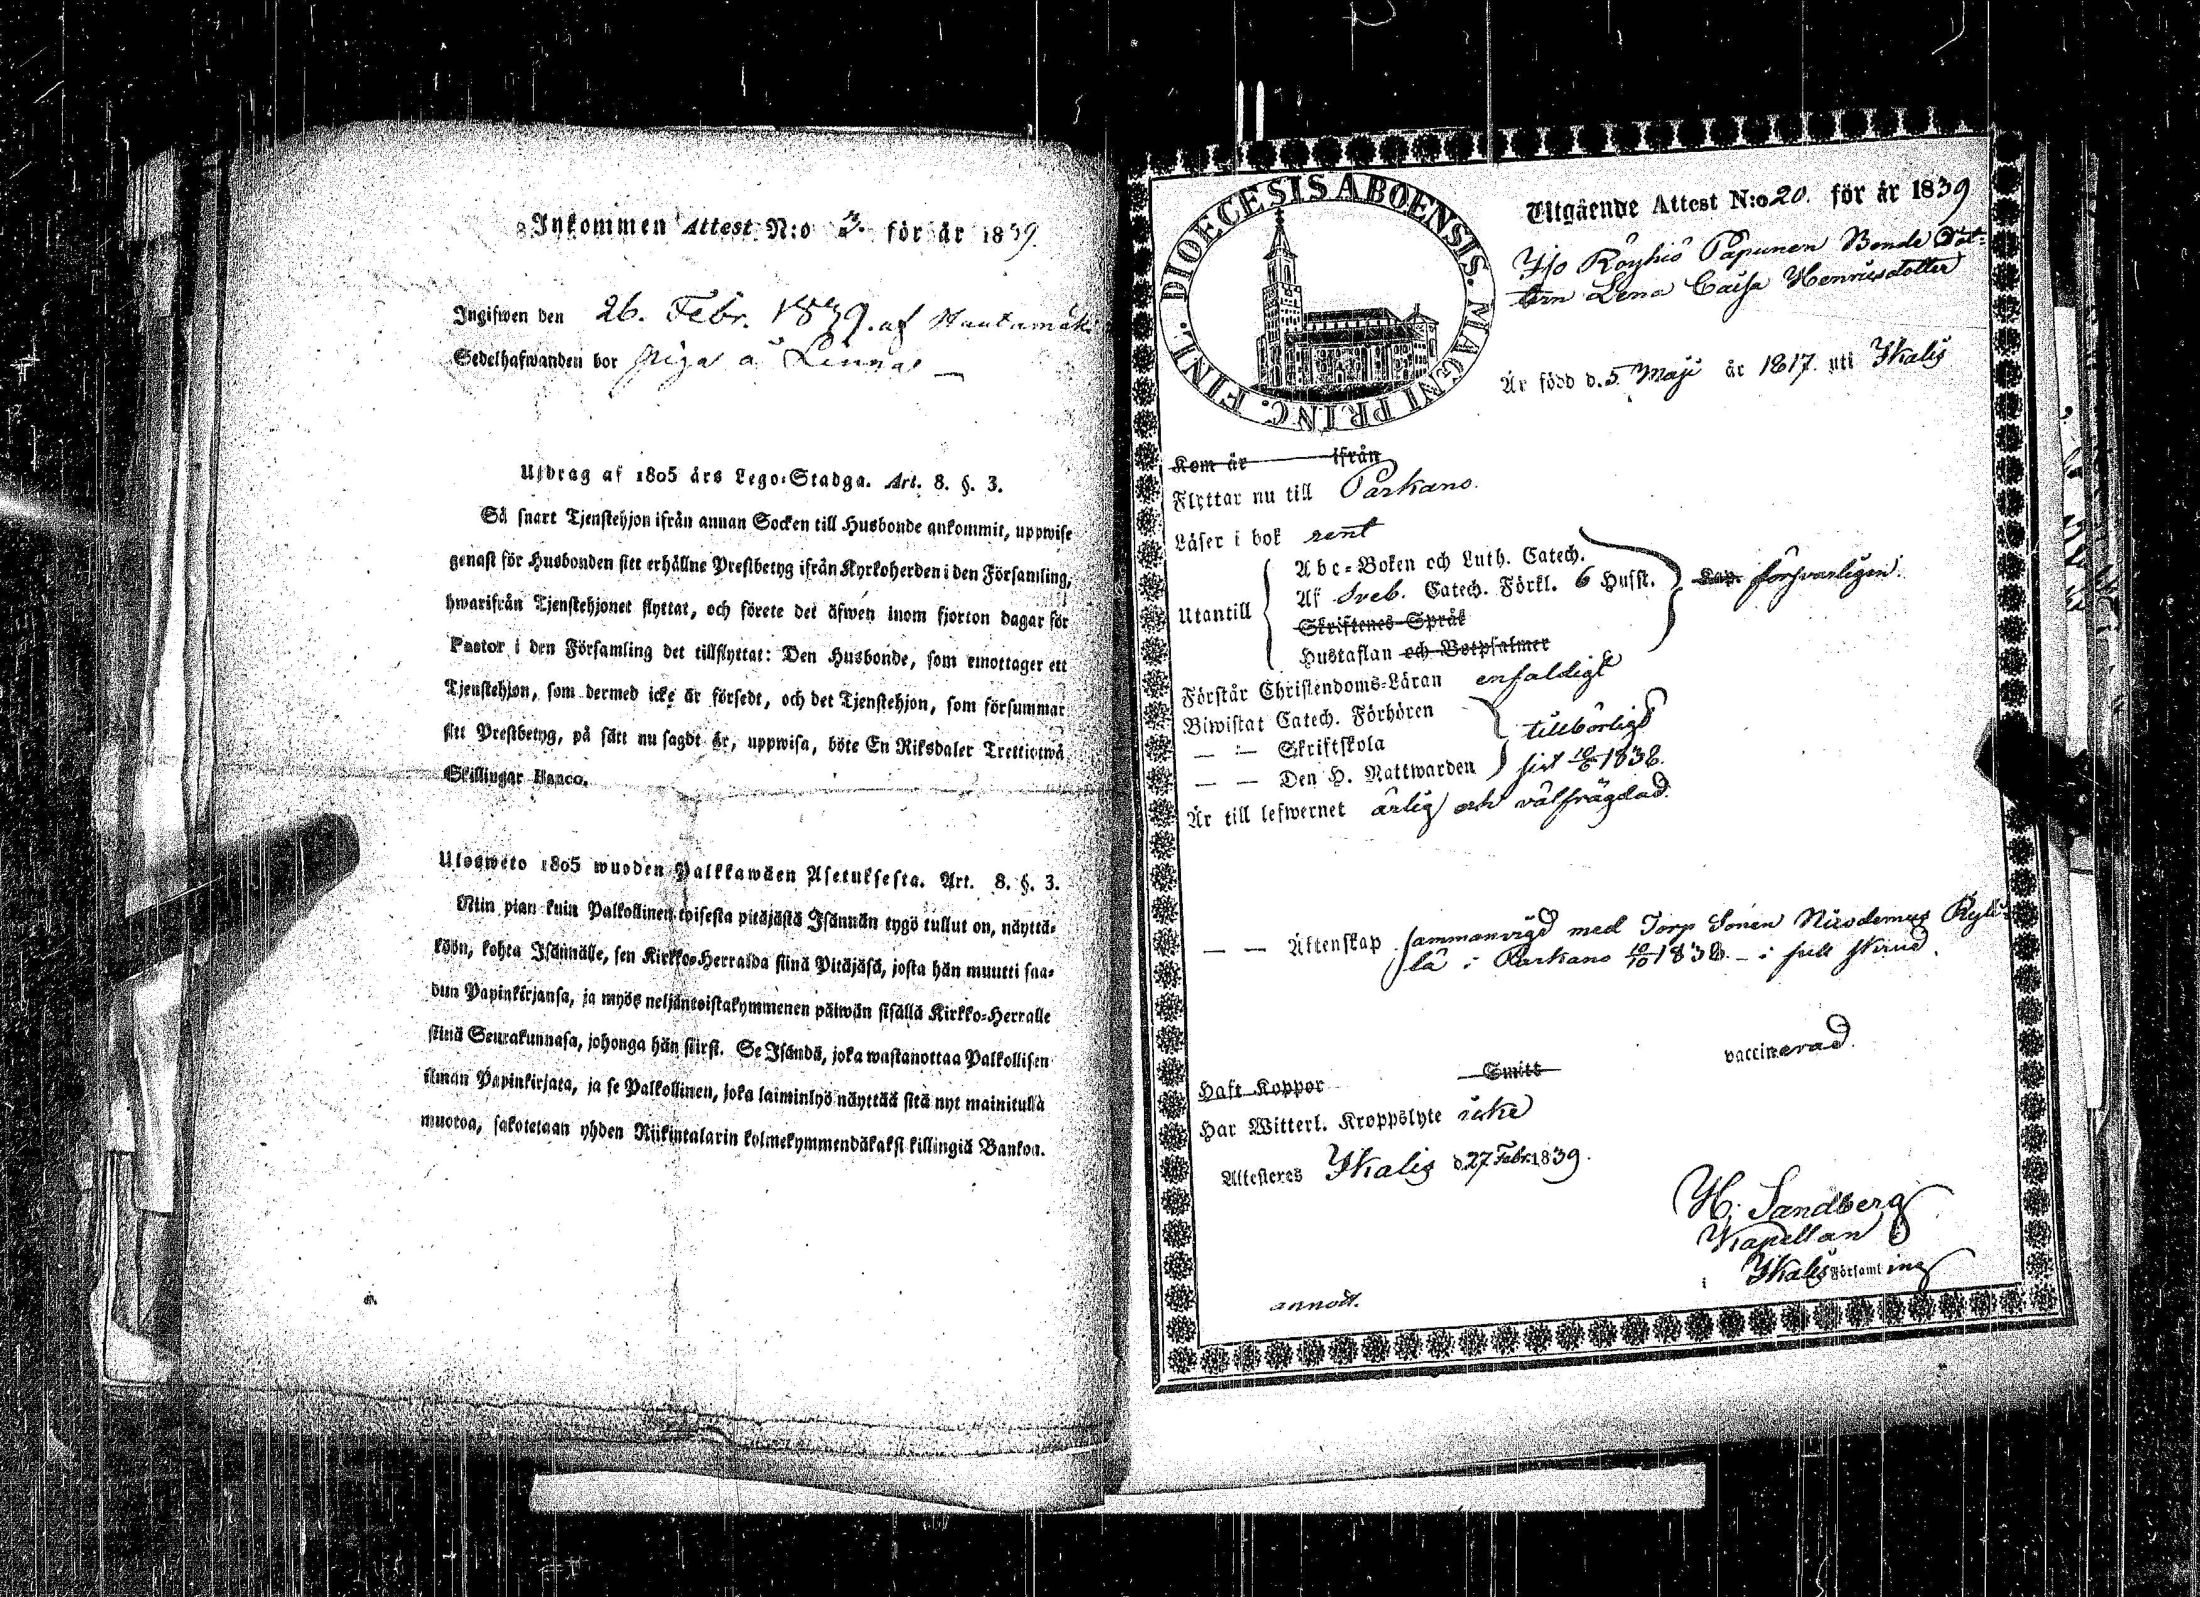 Inkommen Attest N:o 3. för år 1839.
Ingifwen den 26. Febr. 1839. af
Sedelhafwanden bor piga å
Utdrag af 1805 års Lego-Stadga. Art. 8. §. 3.
Så snart Tjenstehjon ifrån annan Socken till Husbonde ankommit, uppwise
genast för Husbonden sitt erhållne Prestbetyg ifrån Kyrkoherden i den Församling,
hwarifrån Tjenstehjonet flyttat, och förete det äfwen inom fjorton dagar för
Pastor i den Församling det tillflyttat: Den Husbonde, som emottager ett
Tjenstehjon, som dermed icke är försedt, och det Tjenstehjon, som försummar
sitt Prestbetyg, på sätt nu sagdt är, uppwisa, böte En Riksdaler Trettiotwå
Skillingar Banco.
Ulosweto 1805 wuoden Palkkawäen Asetuksesta. Art. 8. §. 3.
Niin pian kuin Palkollinen toisesta pitäjästä Isännän tygö tullut on, näyttä-
köön, kohta Isännälle, sen Kirkko-Herralda siinä Pitäjäsä, josta hän muutti saa-
dun Papinkirjansa, ja myös neljäntoistakymmenen päiwän sisällä Kirkko-Herralle
siinä Seurakunnasa, johonga hän siirsi. Se Isändä, joka wastanottaa Palkollisen
ilman Papinkirjata, ja se Palkollinen, joka laiminlyö näyttää sitä nyt mainitulla
muotoa, sakotetaan yhden Riikintalarin kolmekymmendäkaksi killingiä Bankoa.
DIOECESIS ABOENSIS. MAGNI PRINC. FINL.
Utgående Attest N:o 20. för år 1839
Röyhiö Papunen Bonde Dot-
tern Lena Caisa Henricsdotter
Är född d. 5 Maji år 1817. uti Ikalis
Kom år ifrån
Flyttar nu till Parkano.
Läser i bok rent
Utantill
Abc-Boken och Luth. Catech.
Af Sveb. Catech. Förkl. 6 Hufst.
Skriftenes Språk
Hustaflan och Botpsalmer
försvarligen.
Förstår Christendoms-Läran enfaldigt
Biwistat Catech. Förhören
— — Skriftskola
— — Den H. Nattwarden
tillbörligt
sist 1838.
Är till lefwernet ärlig och välfrägdad.
— — Äktenskap sammanvigd med Torp Sonen Nicodemus
i Parkano 1838 – i full skrud.
Haft Koppor Smitt vaccinerad.
Har Witterl. Kroppslyte icke
Attesteres Ikalis d. 27 Febr. 1839.
H. Sandberg
Kapellan
i Ikalis Församling
annot.